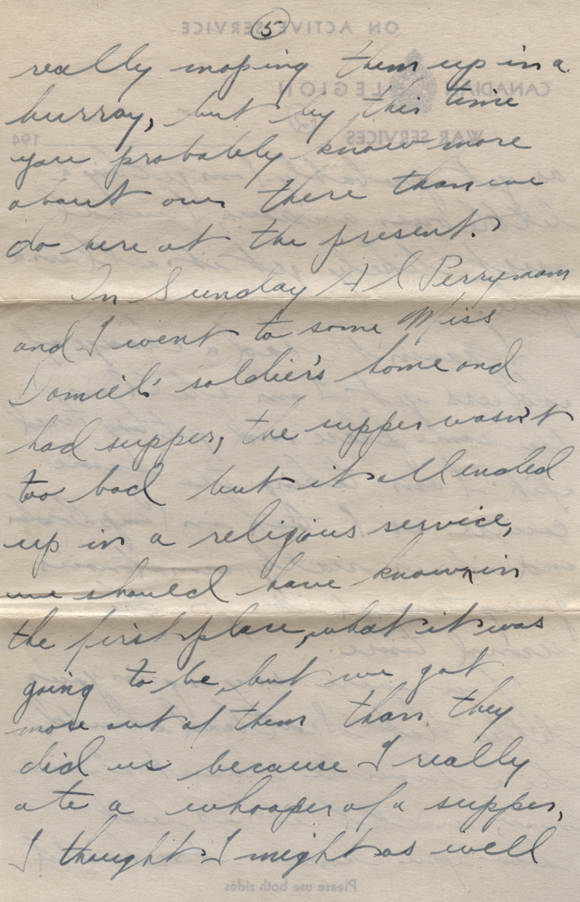 5
really moping them up in a
hurray, but by this time
you probably know more
about over there than we
do here at the present.
On Sunday Al Perryman
and I went to some Miss
Daniels' soldier's home and
had supper, the supper wasn't
too bad but it all ended
up in a religious service,
we should have known in
the first place, what it was
going to be, but we got
more out of them than they
did us because I really
ate a whooper of a supper,
I thought I might as well
ON ACTIVE SERVICE
CANADIAN LEGION
WAR SERVICES
194
Please use both sides